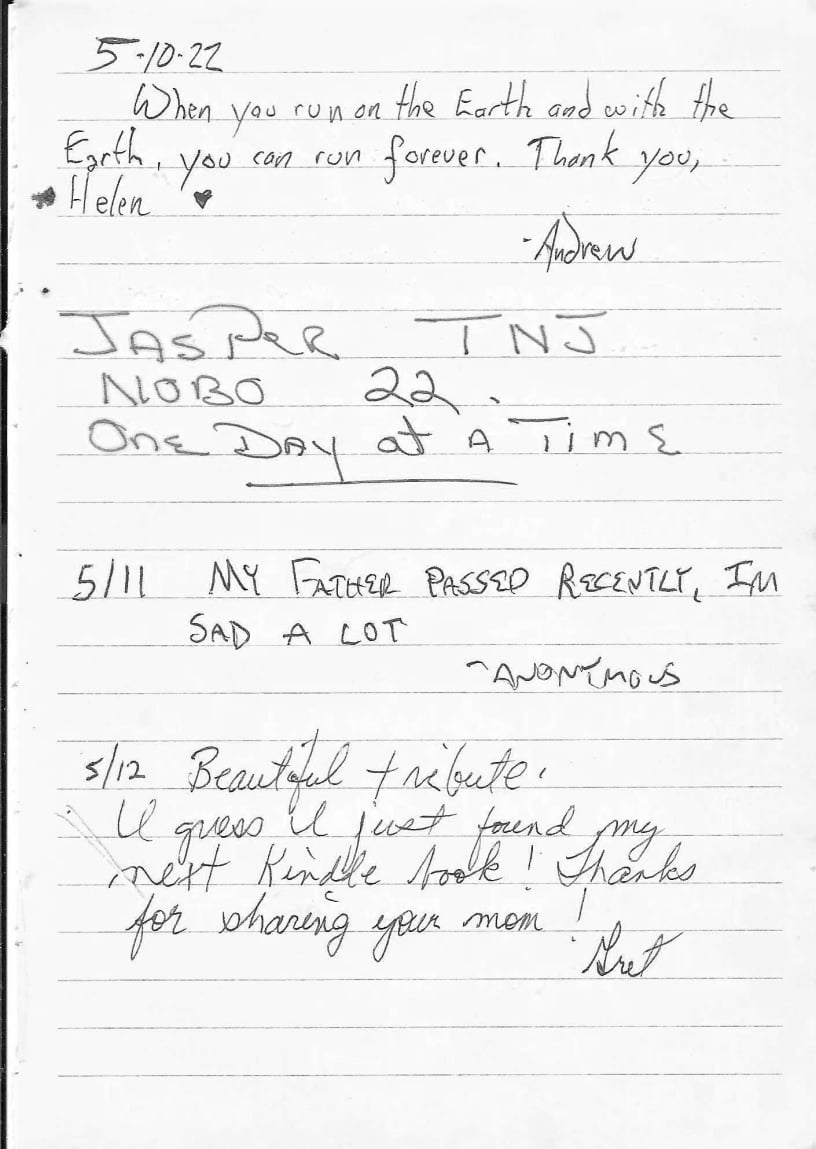 5-10-22
When you run on the Earth and with the
Earth, you can run forever. Thank you,
Helen ♥
-Andrew
JASPER TNJ
NOBO 22.
ONE DAY at A TimE
5/11 MY FATHER PASSED RECENTLY, IM
SAD A LOT
~ANONYMOUS
5/12 Beautiful tribute.
I guess I just found my
next Kindle book! Thanks
for sharing your mom!